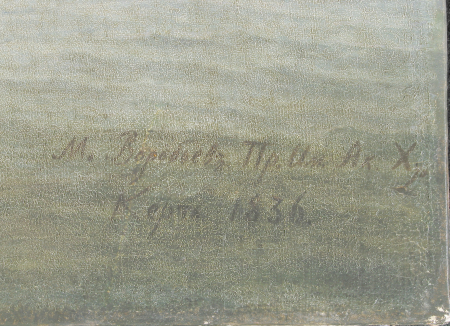 М. Воробьевъ Пр. Им. Ак. Х.
Керчь 1836.